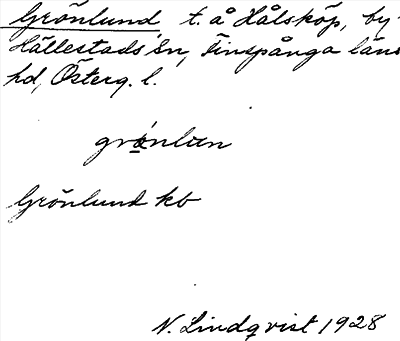 Grönlund t. å Hålsköp, by
Hällestads sn, Finspånga läns
hd, Österg. l.
grö́nlun
Grönlund kb
N. Lindqvist 1928